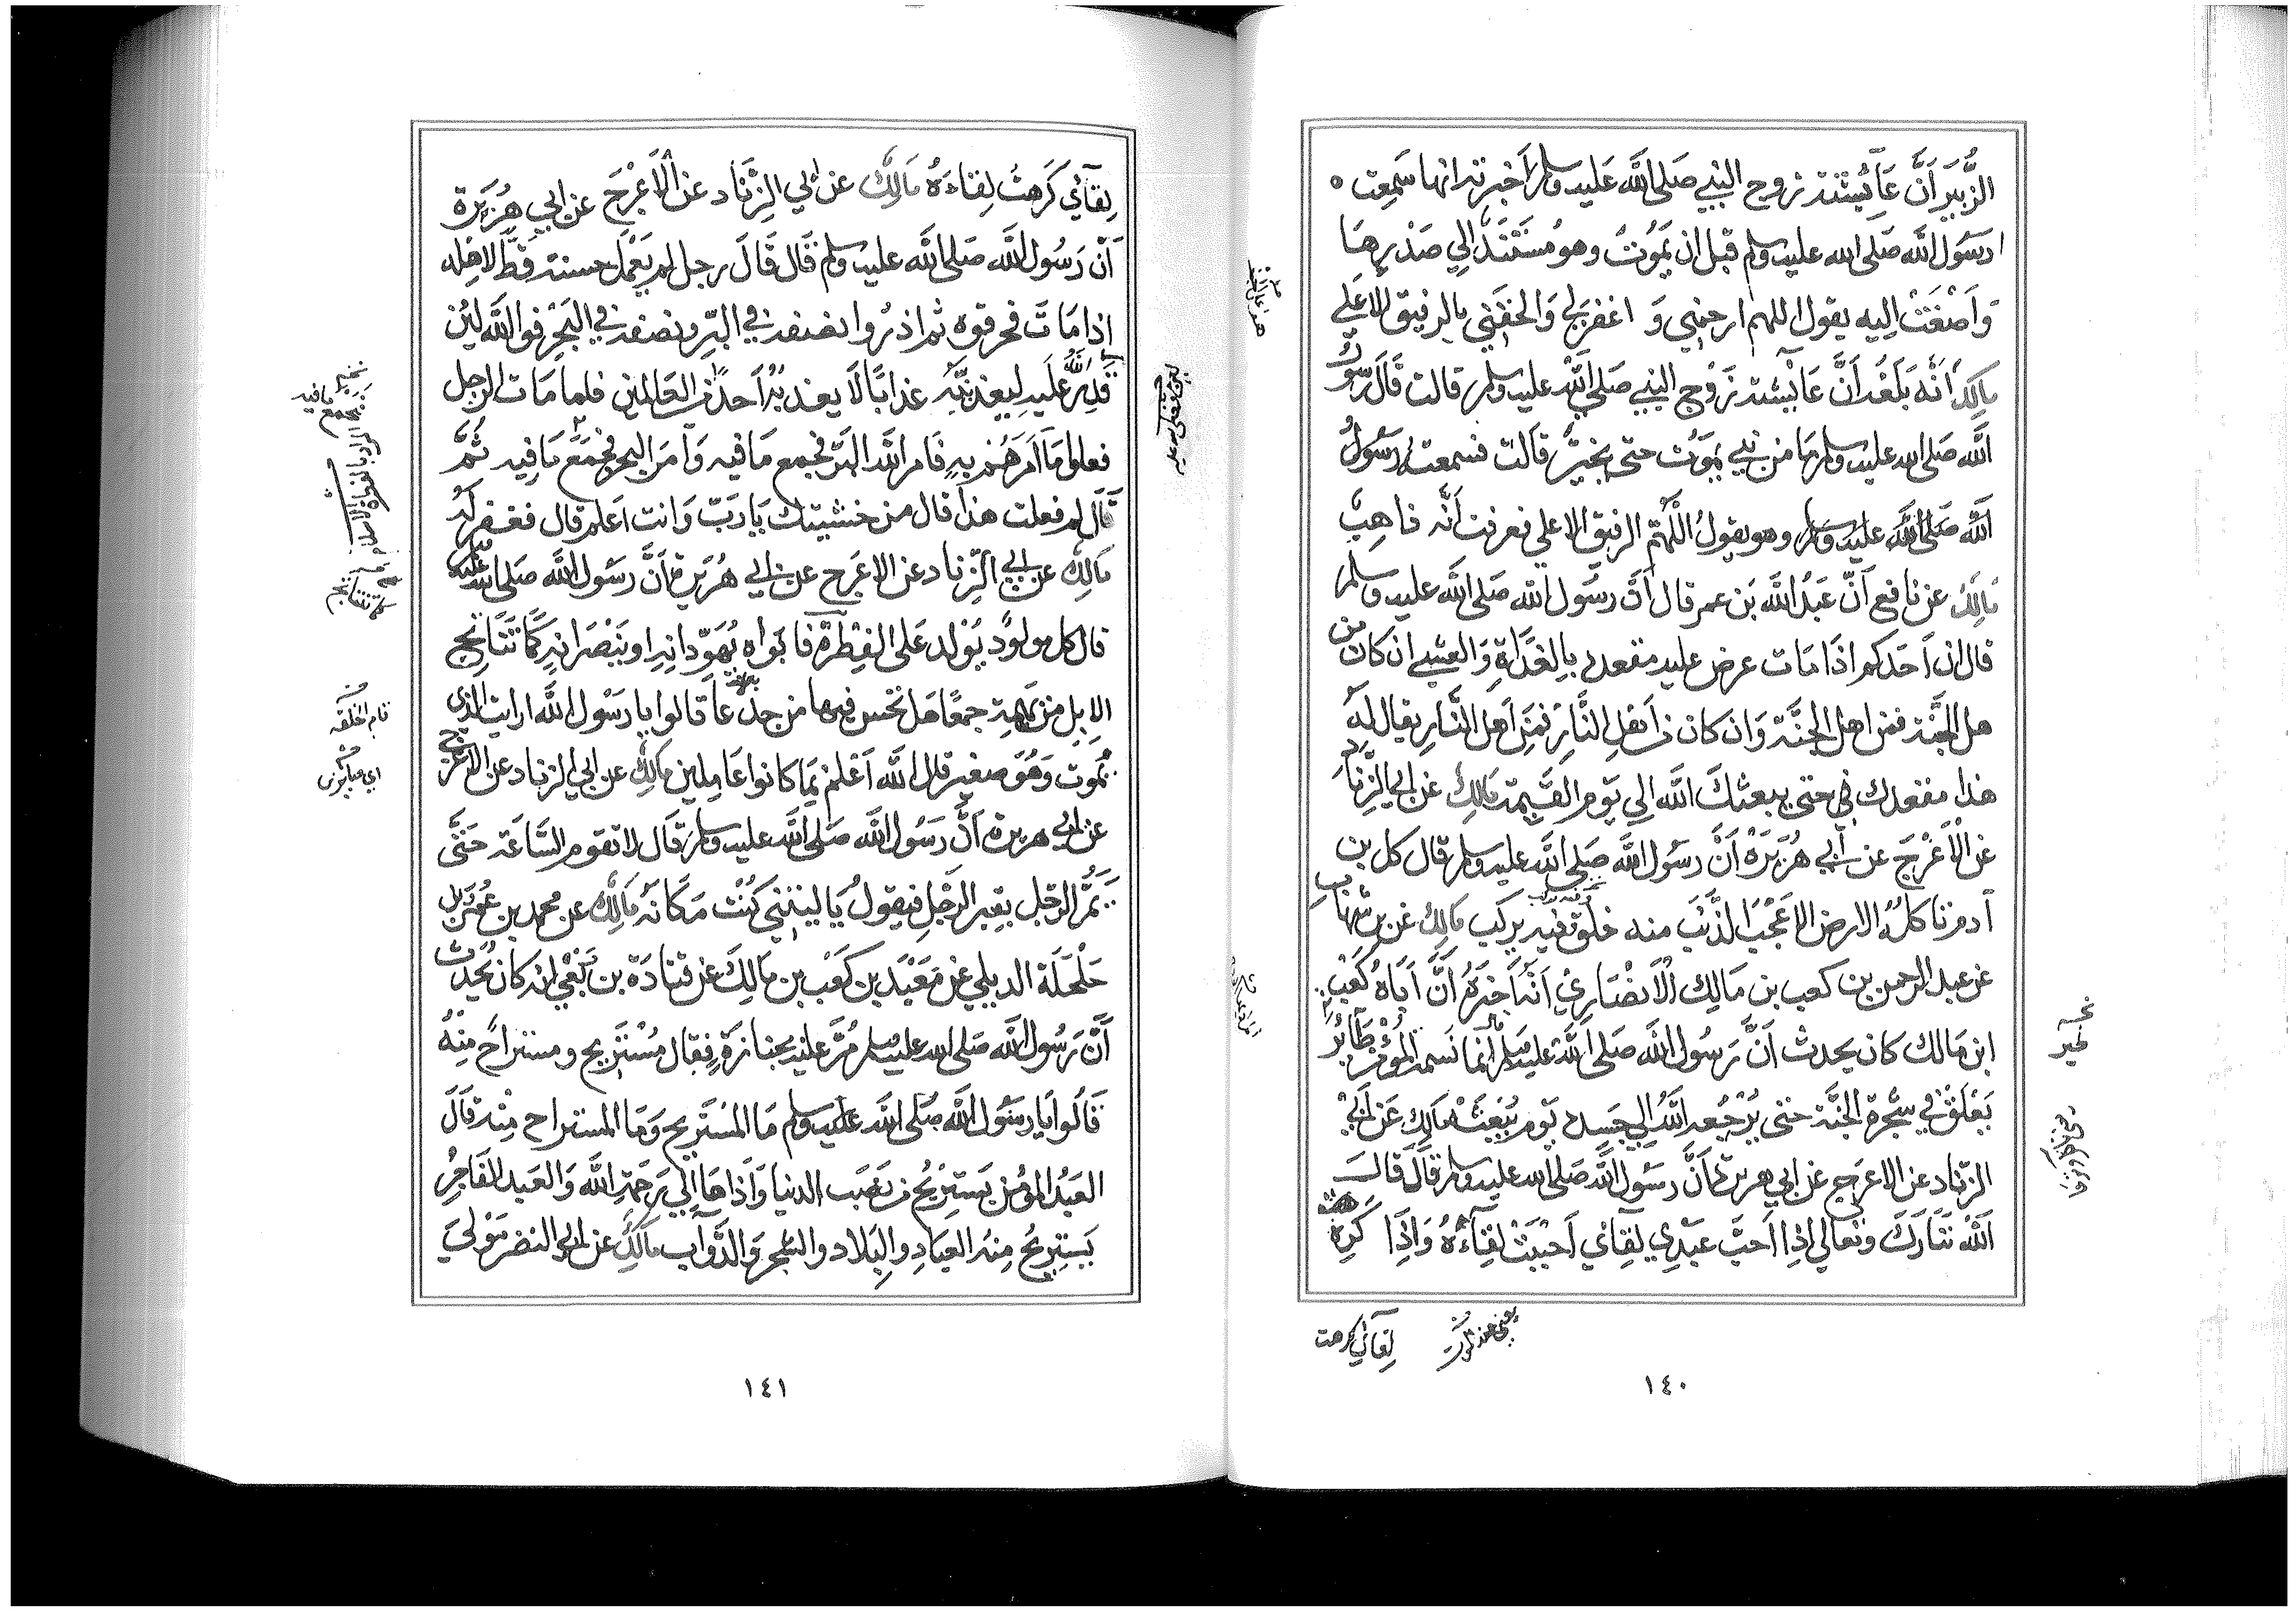 الزُّبَيرَ أَنَّ عَائِشَتَه زوج النبي صَلى اللَّه عَليه وسلم أخبرته انها سَمِعت
رَسُول اللَّه صَلى الله عليه وسلم قبل ان يَمُوتَ وهو مُستَنَدٌ إلي صَدْرِهَا
وَأَصْغَتْ إليه يقول اللهم ارحمني وَ اغفرلي وَالحقْنِي بالرفيق الاعلي
مالك أَنَّه بَلَغَه أَنَّ عَائِشَته زَوْج النبي صَلى اللَّه عليه وسلم قالت قَالَ رَسُول
اللَّه صَلى الله عليه وسلم مَا من نبي يَمَوُت حتى يخيَّر قَالت فسمعت رَسُولُ
اللَّه صَلَى اللَّه عليه وسلم وهو يقولُ اللَّهُمَّ الرفيق الاعلي فعرفت أَنَّه ذاهِبٌ
مَالِك عن نافع أَنّ عَبدُ اللَّه بَن عمر قال أنَّ رَسُول الله صَلى اللَّه عليه وسلم
قال ان أحَدَكم اذَا مَات عرض عليه مقعده بِالغَدَاةِ وَالعشي ان كان من
هل الجنَّة فمن اهل الجنَّة وَان كان من أهلِ النَّارِ فَمِن أهل النَّارِ يقال لَه
هذا مقعدك في حتى يبعثك اللَّه الي يَوم القيٰمة مَالِك عَن ابي الزِّنَاد
عَن الأَعْرَج عن أبي هُرَيْرَة أَنَّ رسُول اللَّه صَلى اللَّه عليه وسلم قال كل بن
آدم تاكلُهُ الارض الا عَجْبَ الذَّنَب منه خلق وفيه يركب مَالِك عَن بن شهاب
عَن عبد الرحمن بن كعب بن مَالِك الأنصَارِيِ أَنَّه أخبَرَهُ أَنَّ أَبَاهُ كَعْب
ابن مَالك كان يحدث أَنَّ رَسُول اللَّه صَلى اللَّه عليه وسلم قال انما نَسمة المؤمن طَائرٌ
يَعْلَقْ في شجَرة الجنَّة حتى يُرْجِعه اللَّهُ إلي جَسَده يَوم يُبْعَثْ مَالِك عَن أبي
الزناد عن الاعرَج عَن ابي هريرة أَنَّ رسُول اللَّه صَلى الله عليه وسلم قَالَ قَالَ
اللَّهُ تَبَارَكَ وَتعَالي اذِا أحبَّ عَبْدِي لِقائي أحْبَبْتُ لِقَاءَهُ وَإذَا كَرِهَ
يعني عند الموت
لِقائي كرهت
١٤٠
لِقَائي كَرَهتُ لِقاءَهُ مَالِك عن أبي الزِّنَاد عَن الأَعْرَج عَن ابي هُرَيرة
أَنَّ رَسُول اللَّه صَلى اللَّه عليه وسلم قَال قَالَ رجل لم يَعْمَل حسنته قَطُّ لاهِله
اذا مَاتَ فحرقوه ثم اذرُوا نصفه في البَرِ ونصفه في البَحْرِ فوالله لئِن
قَدِرَ اللَّهُ عَليه ليعذبَنَّه عذابًا لَا يعذبُهُ أحَدًا من العَالمين فلما مَات الرجل
فعلوا مَا أَمرَهُم بِهِ فَامر اللَّه البَرَّ فجمع مَا فيه وَأمرَ البحر فجمَعَ مَا فيه ثُمَّ
قَالَ لم فعلت هذا قال من خشيتك يَا رَبِّ وَانت أعلم قال فغفر لَه
مَالِك عن ابي الزِّناد عن الاعْرَج عن ابي هُرَيرة أَنَّ رَسُول اللَّه صَلى الله عليه وسلم
قال كل مولودٍ يُولد عَلى الفِطرَة فَابَواه يُهَوِّدَانِهِ او يُنَصِّرَانِهِ كَمَا تَنَاتَج
الإبِلِ من بَهيمةٍ جمعًا هَل تحس فيها من جدعا قالوا يا رَسُول اللَّه أرايت الذي
يموت وَهُوَ صغير قال اللَّه أعْلم بِمَا كانوا عَامِلين مَالِك عن ابي الزناد عن الاعْرَج
عن ابي هريرة أَنَّ رَسُول اللَّه صَلى اللَّه عليه وسلم قَال لا تقوم السَّاعَة حَتَّى
يَمُرَّ الرَّجل بقبر الرَّجلِ فيقولُ يَا ليتَنِي كُنْت مَكانَه مَالِك عن محمد بن عَمْرو بن
حَلْحَلَة الديلي عن مَعْبَد بن كَعْب بن مَالِكَ عن قتادَة بن ربْعي انه كان يُحَدِّث
أَنَّ رَسُول اللَّه صَلى الله عليه وسلم مُرَّ عليه بجنازةٍ فَقال مُسْتَرِيح ومستراحٌ مِنْهُ
قَالُوا يَا رَسُول اللَّه صَلى اللَّه عليه وسلم مَا المُسْتَرِيح وَمَا المستراح مِنْه قَالَ
العَبدُ المؤمن يَستَرِيحُ من نَصَب الدنيا وَأَذاهَا إلي رَحمَةِ اللَّه وَالعَبد الفَاجِرُ
يَستِريحُ مِنه العبَادِ والبِلاد والشجر وَالدَّوَآب مَالِك عن ابي النضر مَوْليَ
تام الخلقه
١٤١